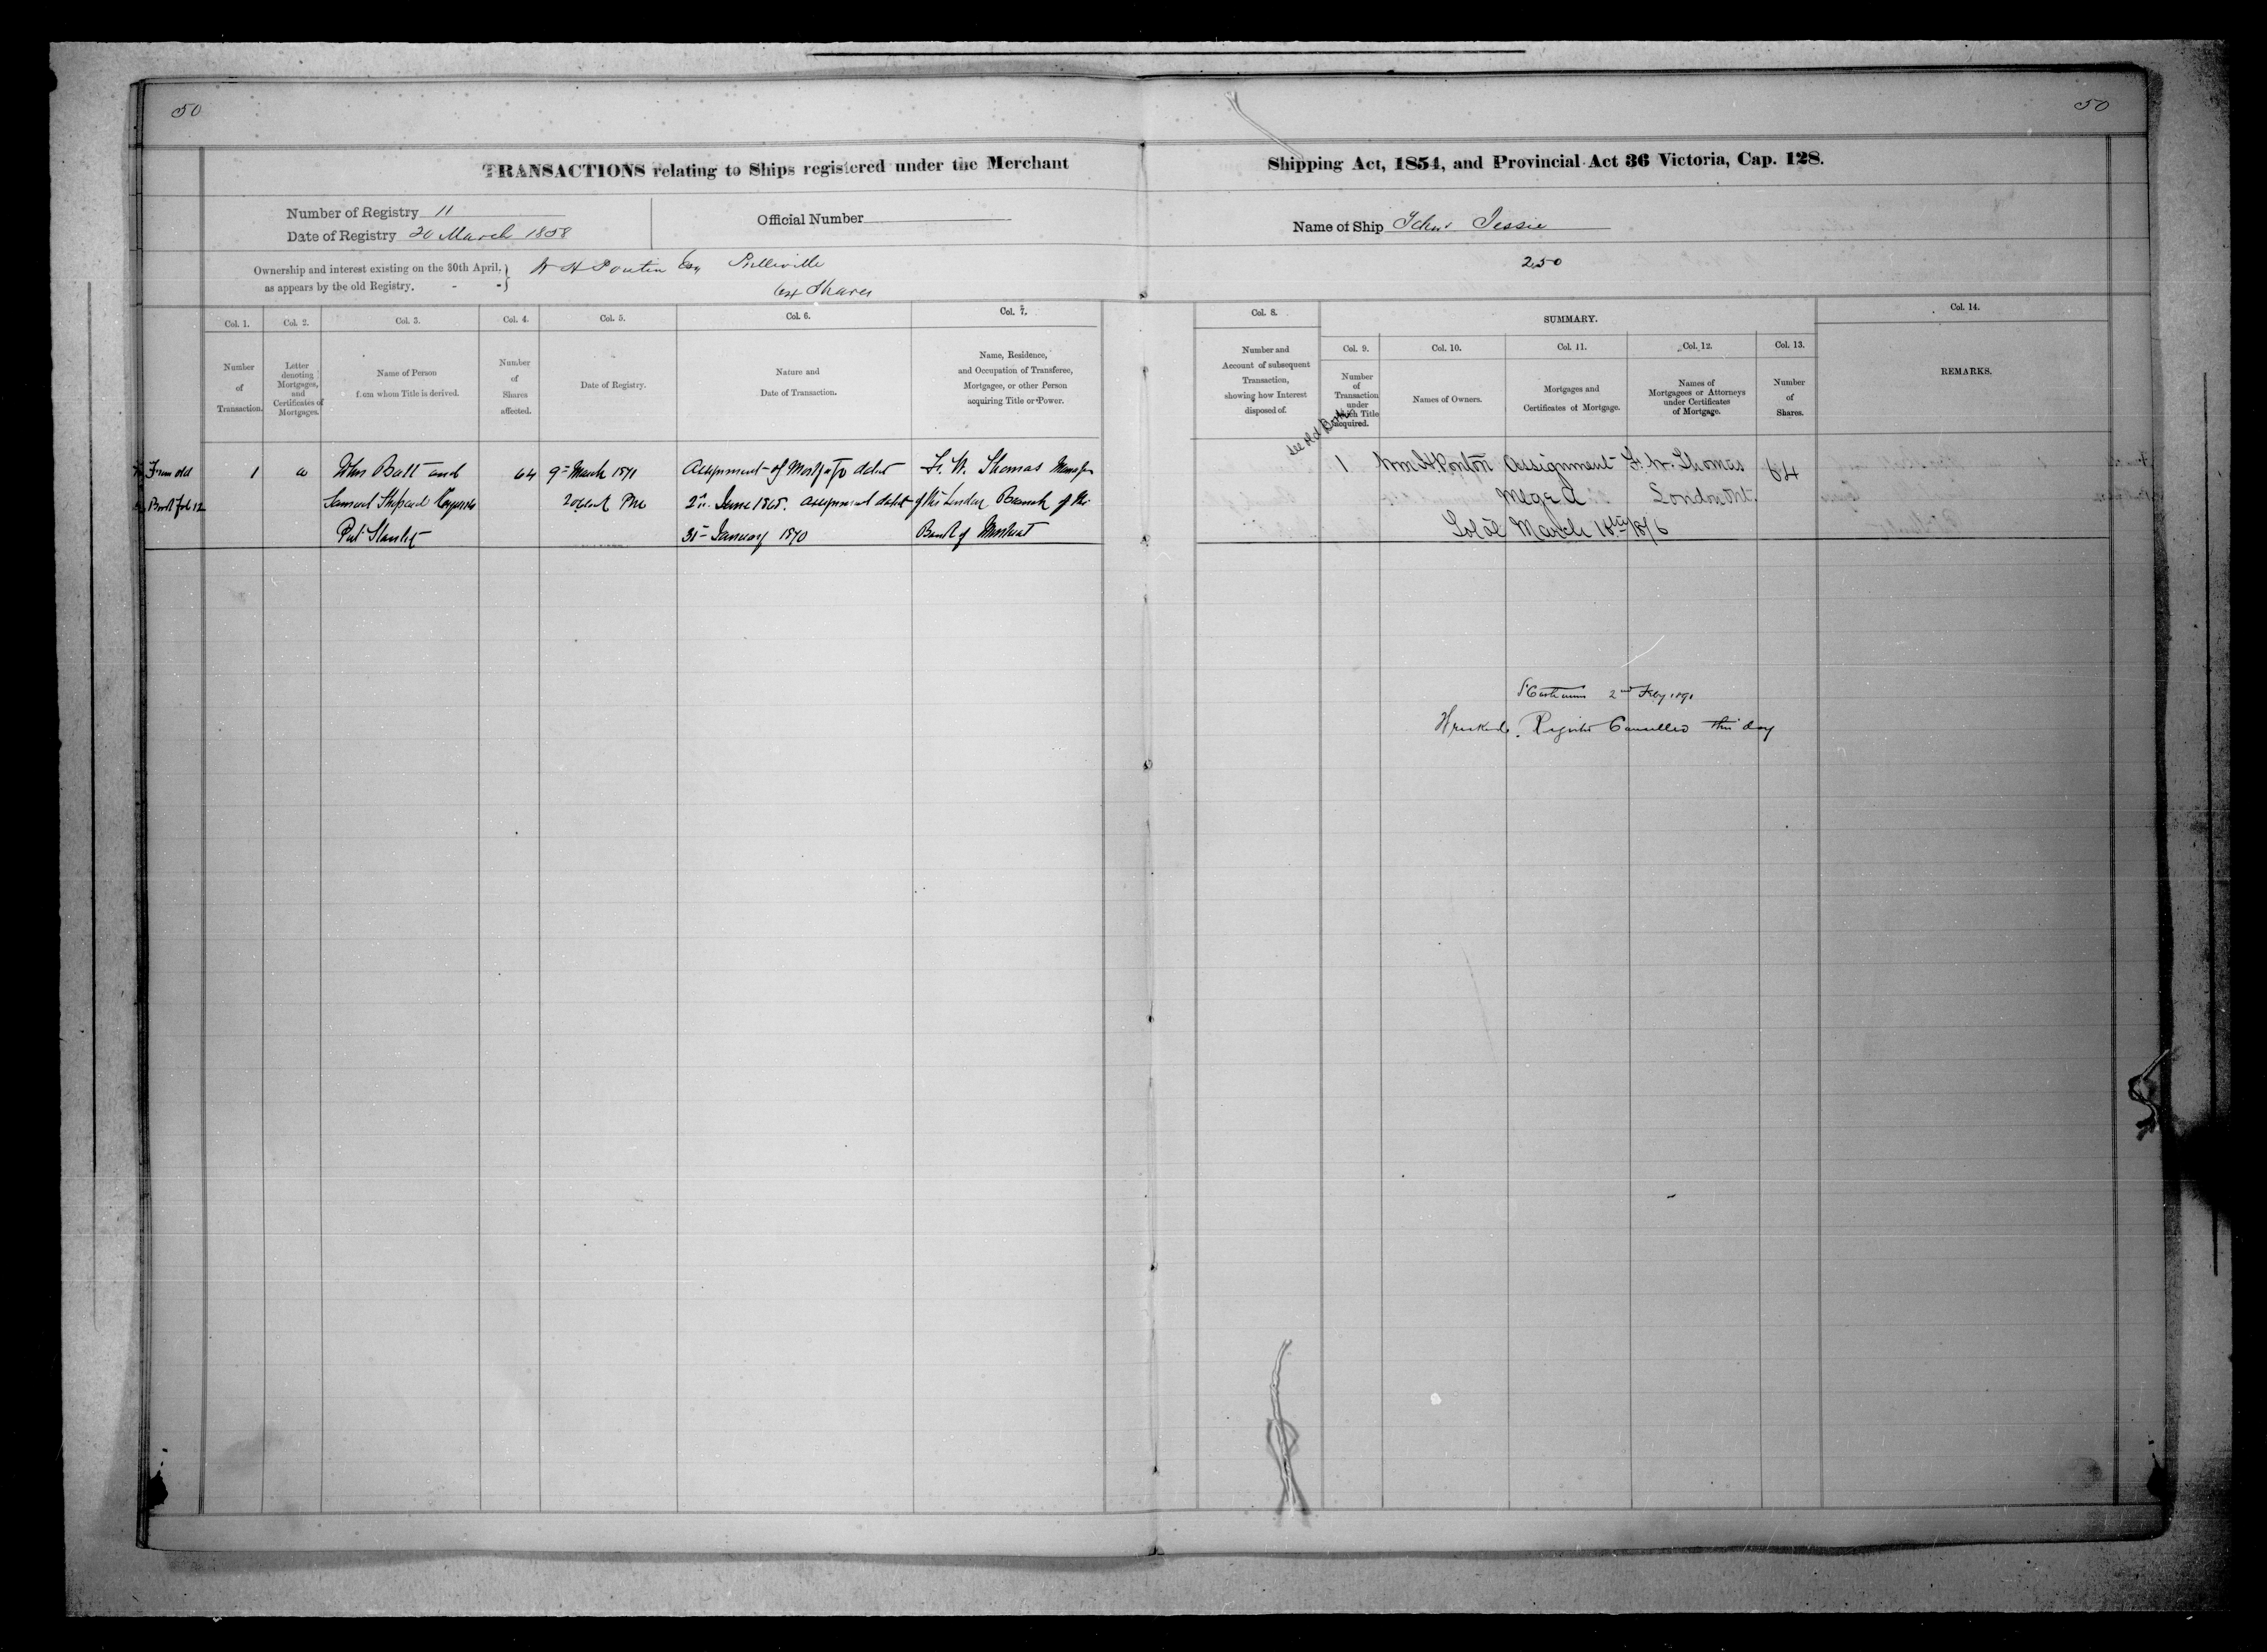 50
50
TRANSACTIONS relating to Ships registered under the Merchant Shipping Act, 1854, and Provincial Act 36 Victoria, Cap. 128.
Number of Registry 11
Date of Registry 20 March 1858
Official Number
Name of Ship Schr Jessie
250
Ownership and interest existing on the 30th April,
as appears by the old Registry.
W H Ponton Esq Belleville
64 Shares
Col. 1.
Number
of
Transaction.
Col. 2.
Letter
denoting
Mortgages,
and
Certificates of
Mortgages.
Col. 3.
Name of Person
from whom Title is derived.
Col. 4.
Number
of
Shares
affected.
Col. 5.
Date of Registry.
Col. 6.
Nature and
Date of Transaction.
Col. 7.
Name, Residence,
and Occupation of Transferee,
Mortgagee, or other Person
acquiring Title or Power.
Col. 8.
Number and
Account of subsequent
Transaction,
showing how Interest
disposed of.
SUMMARY.
Col. 9.
Number
of
Transaction
under
which Title
acquired.
Col. 10.
Names of Owners.
Col. 11.
Mortgages and
Certificates of Mortgage.
Col. 12.
Names of
Mortgagees or Attorneys
under Certificates
of Mortgage.
Col. 13.
Number
of
Shares.
Col. 14.
REMARKS.
From old
Book fol 12
1
a
John Batt and
Samuel Shepard
Port Stanley
64
9th March 1871
2 oclock Pm
Assignment of Mortgage dated
2nd June 1865. assignment dated
31st January 1870
F. W. Thomas Manager
of the London Branch of the
Bank of Montreal
see old Book
1
Wm H. Ponton
Assignment
Mtge A
F. W. Thomas
London Ont.
64
March 18th 1876
St Catharines 2nd Feby 1891
Wrecked. Register Cancelled this day